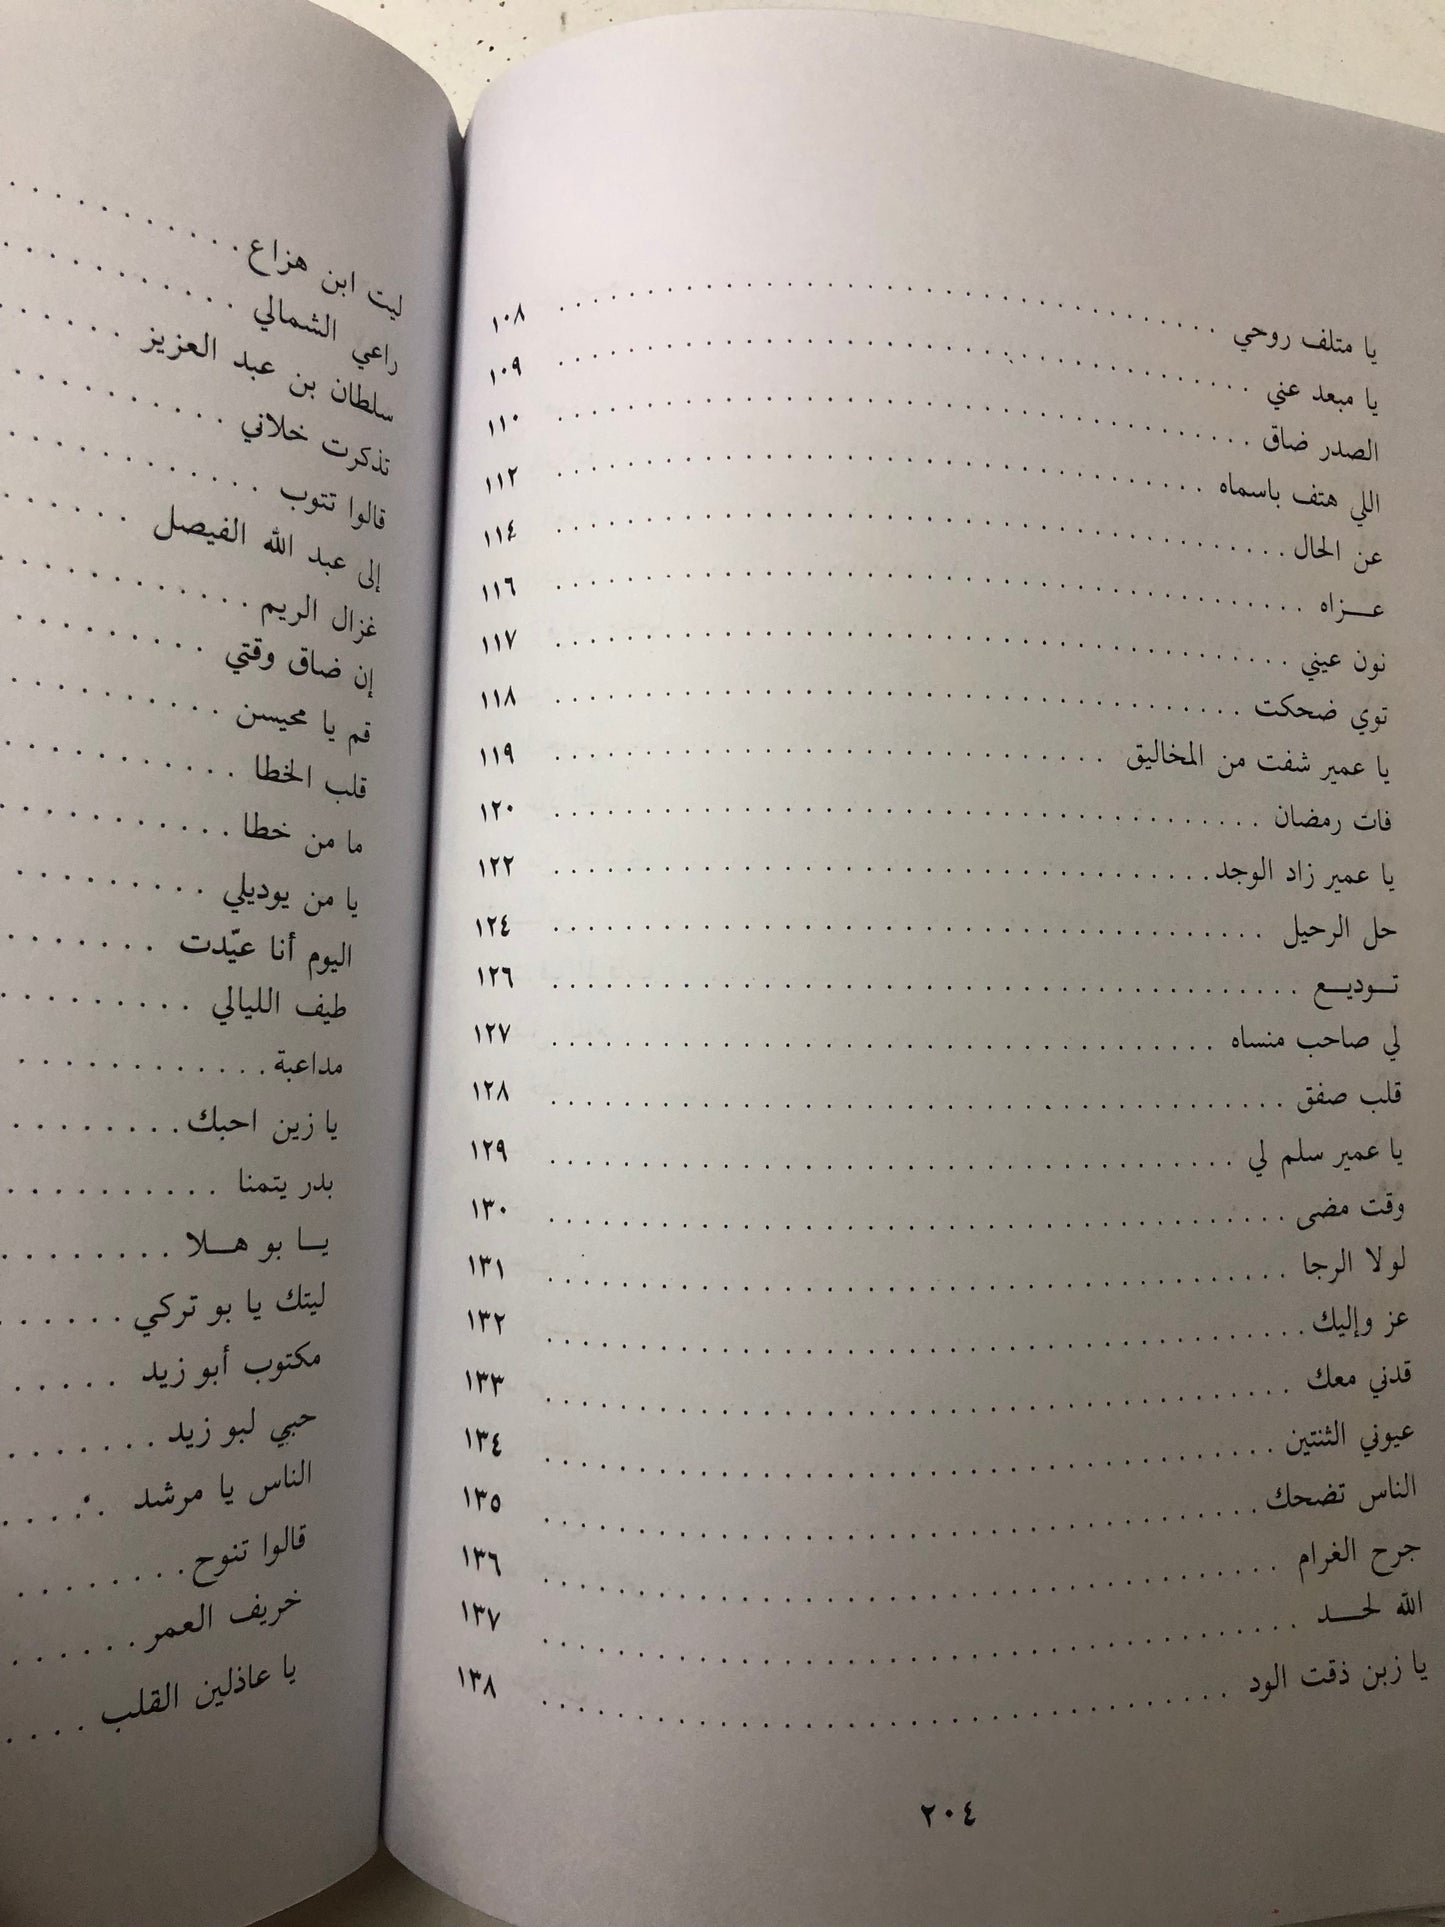 يا متلف روحي . . . . . . . . . . . . . . . . . . . . ١٠٨
يا مبعد عني . . . . . . . . . . . . . . . . . . . . ١٠٩
الصدر ضاق . . . . . . . . . . . . . . . . . . . . ١١٠
اللي هتف باسماه . . . . . . . . . . . . . . . . . . . . ١١٢
عن الحال . . . . . . . . . . . . . . . . . . . . ١١٤
عــزاه . . . . . . . . . . . . . . . . . . . . ١١٦
نون عيني . . . . . . . . . . . . . . . . . . . . ١١٧
توي ضحكت . . . . . . . . . . . . . . . . . . . . ١١٨
يا عمير شفت من المخاليق . . . . . . . . . . . . . . . . . . . . ١١٩
فات رمضان . . . . . . . . . . . . . . . . . . . . ١٢٠
يا عمير زاد الوجد . . . . . . . . . . . . . . . . . . . . ١٢٢
حل الرحيل . . . . . . . . . . . . . . . . . . . . ١٢٤
تــوديــع . . . . . . . . . . . . . . . . . . . . ١٢٦
لي صاحب منساه . . . . . . . . . . . . . . . . . . . . ١٢٧
قلب صفق . . . . . . . . . . . . . . . . . . . . ١٢٨
يا عمير سلم لي . . . . . . . . . . . . . . . . . . . . ١٢٩
وقت مضى . . . . . . . . . . . . . . . . . . . . ١٣٠
لولا الرجا . . . . . . . . . . . . . . . . . . . . ١٣١
عز وإليك . . . . . . . . . . . . . . . . . . . . ١٣٢
قدني معك . . . . . . . . . . . . . . . . . . . . ١٣٣
عيوني الثنتين . . . . . . . . . . . . . . . . . . . . ١٣٤
الناس تضحك . . . . . . . . . . . . . . . . . . . . ١٣٥
جرح الغرام . . . . . . . . . . . . . . . . . . . . ١٣٦
الله لحــد . . . . . . . . . . . . . . . . . . . . ١٣٧
يا زبن ذقت الود . . . . . . . . . . . . . . . . . . . . ١٣٨
٢٠٤
ليت ابن هزاع . . . . . . . . . .
راعي الشمالي . . . . . . . . . .
سلطان بن عبد العزيز . . . . . .
تذكرت خلاني . . . . . . . . . .
قالوا تتوب . . . . . . . . . .
إلى عبد الله الفيصل . . . . . .
غزال الريم . . . . . . . . . .
إن ضاق وقتي . . . . . . . . .
قم يا محيسن . . . . . . . . .
قلب الخطا . . . . . . . . . .
ما من خطا . . . . . . . . . .
يا من يوديلي . . . . . . . . .
اليوم أنا عيّدت . . . . . . .
طيف الليالي . . . . . . . . .
مداعبة . . . . . . . . . . . .
يا زين احبك . . . . . . . .
بدر يتمنا . . . . . . . . . .
يــا بو هــلا . . . . . . . .
ليتك يا بو تركي . . . . . .
مكتوب أبو زيد . . . . .
حبي لبو زيد . . . . . . .
الناس يا مرشد . . . . .
قالوا تنوح . . . . . . . .
خريف العمر . . . . . .
يا عاذلين القلب . . . .